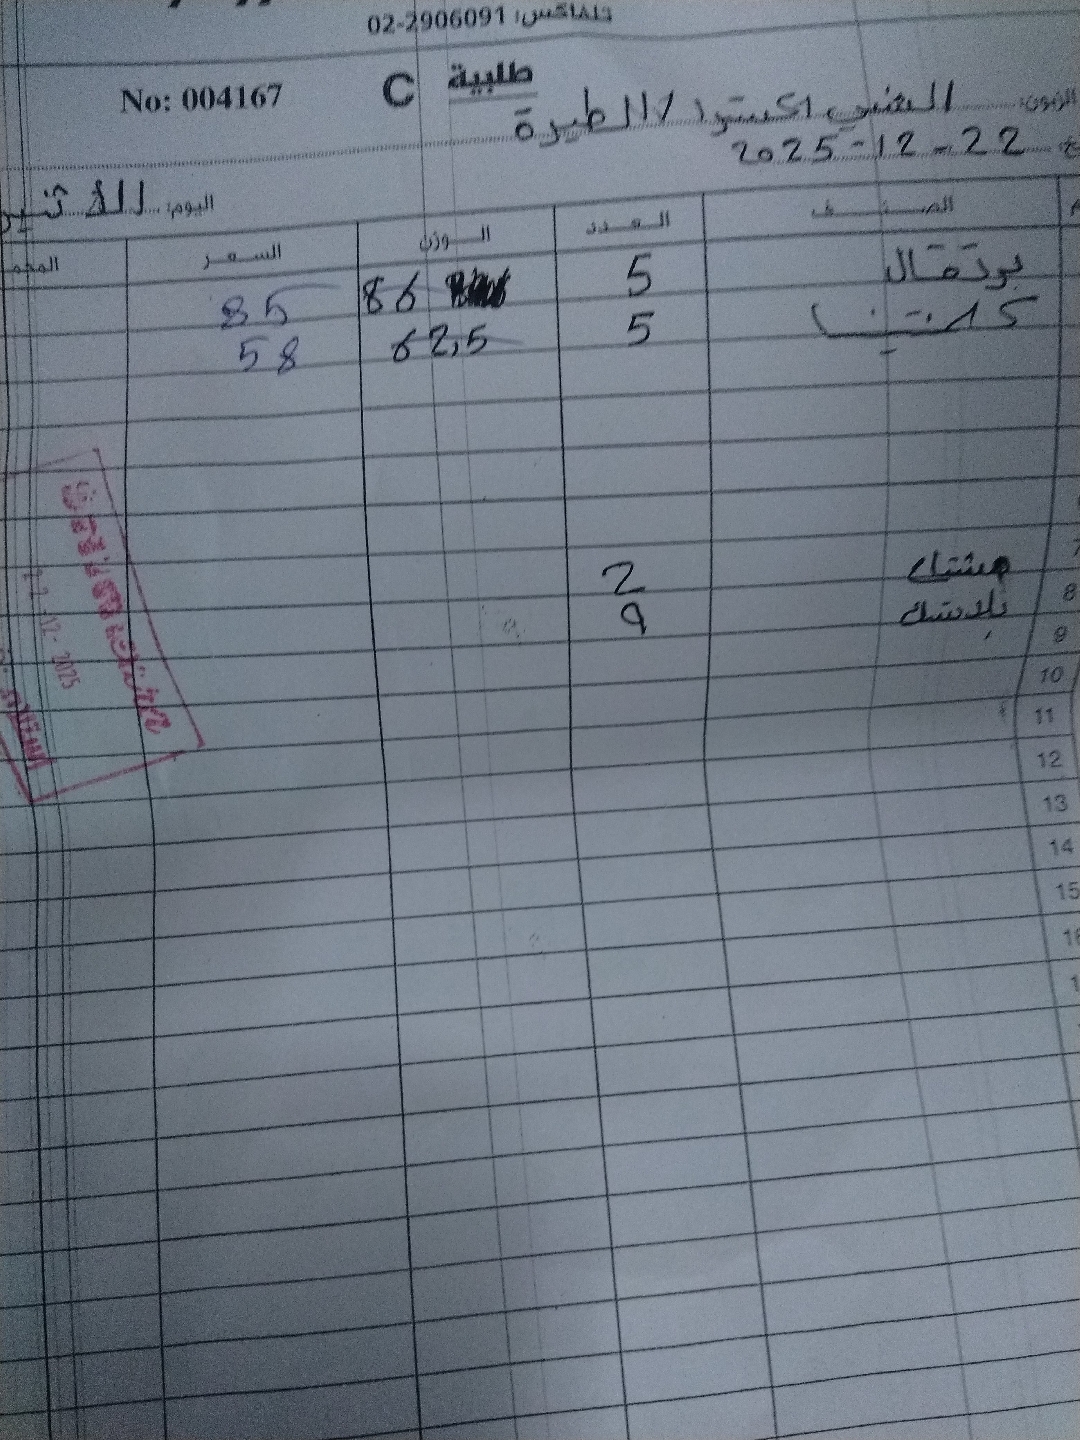 تلفاكس: 02-2906091
No: 004167 C طلبية
الزبون: الشني اكسترا / الطيرة
2025-12-22
اليوم:
الصنف العدد الوزن السعر
برتقال 5 86 85
5 62,5 58
7
مشتاح 2 8
بلاستك 9 9
10
11
12
13
14
15
22-12-2025